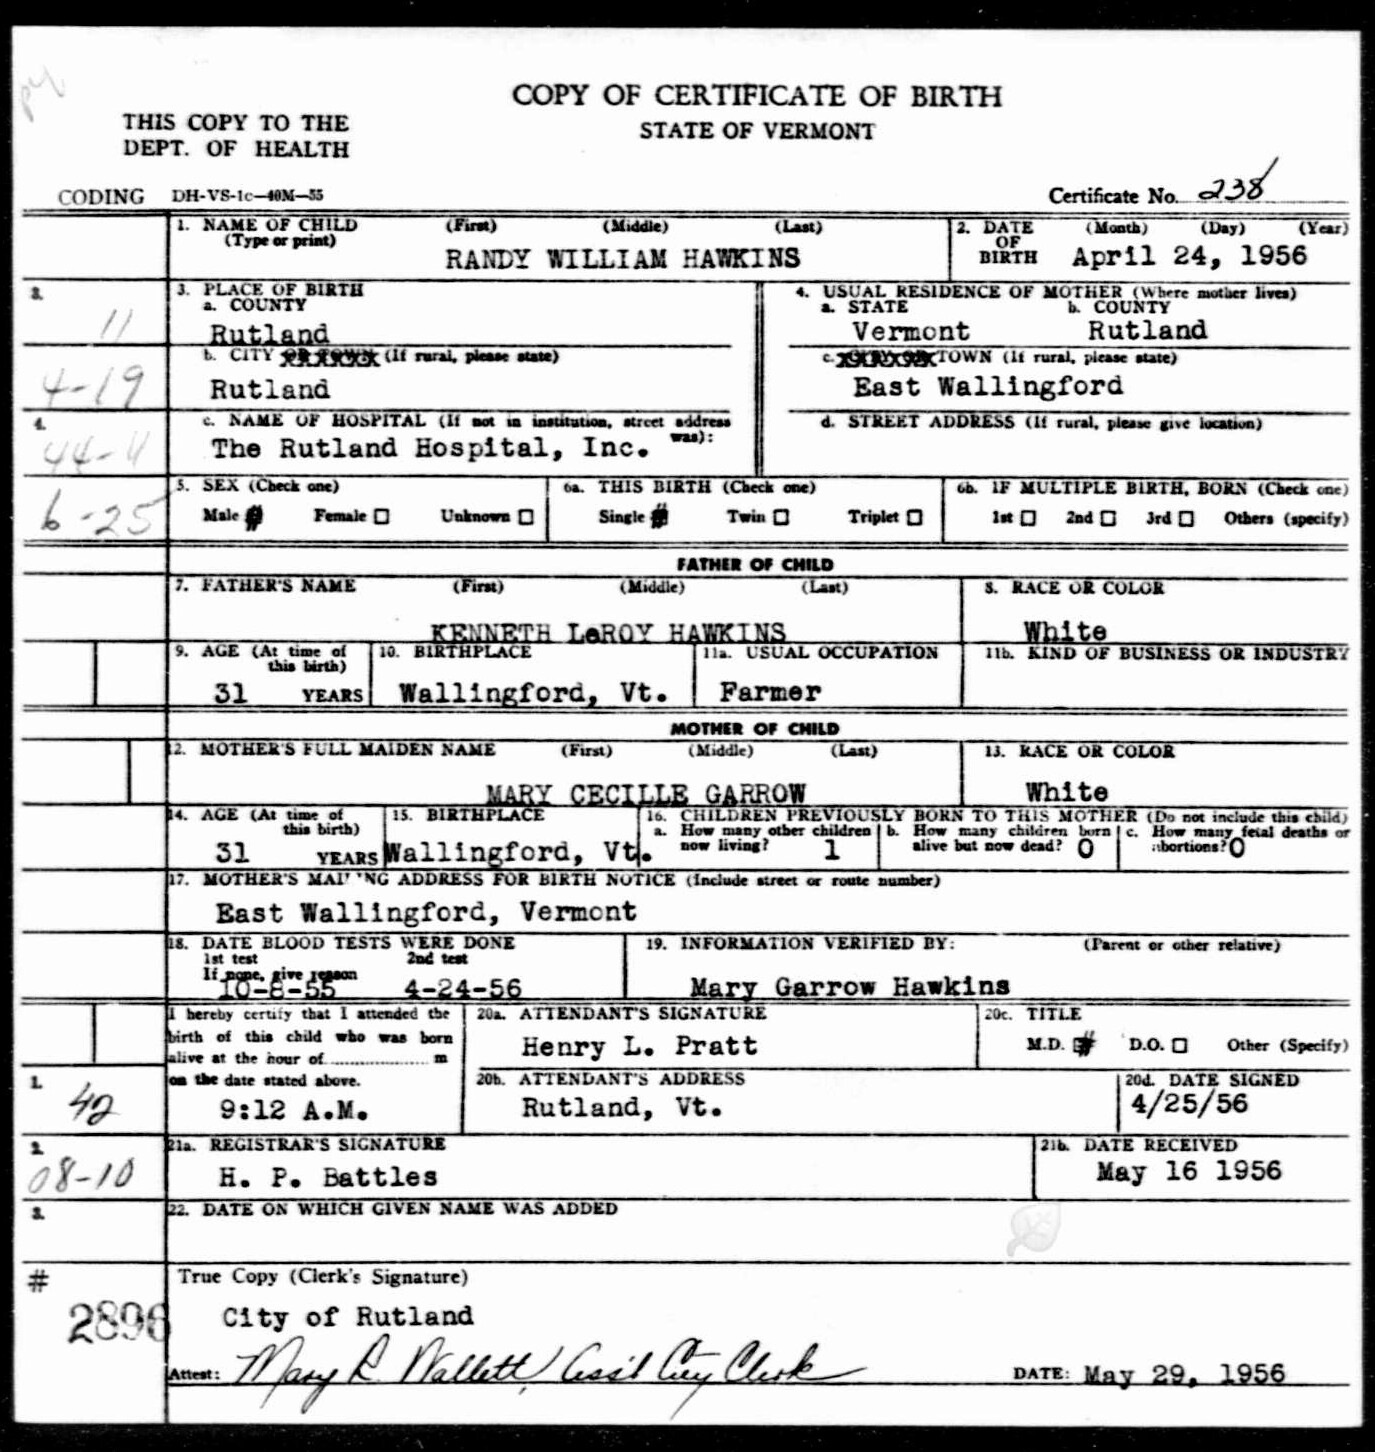 COPY OF CERTIFICATE OF BIRTH
STATE OF VERMONT
THIS COPY TO THE
DEPT. OF HEALTH
CODING DH-VS-1c—40M—55
Certificate No. 238
1. NAME OF CHILD (First) (Middle) (Last)
(Type or print)
RANDY WILLIAM HAWKINS
2. DATE OF BIRTH (Month) (Day) (Year)
April 24, 1956
3.
11
3. PLACE OF BIRTH
a. COUNTY
Rutland
4. USUAL RESIDENCE OF MOTHER (Where mother lives)
a. STATE b. COUNTY
Vermont Rutland
4-19
b. CITY OR TOWN (If rural, please state)
Rutland
c. CITY OR TOWN (If rural, please state)
East Wallingford
4.
44-11
c. NAME OF HOSPITAL (If not in institution, street address was):
The Rutland Hospital, Inc.
d. STREET ADDRESS (If rural, please give location)
6-25
5. SEX (Check one)
Male Female Unknown
6a. THIS BIRTH (Check one)
Single Twin Triplet
6b. IF MULTIPLE BIRTH, BORN (Check one)
1st 2nd 3rd Others (specify)
FATHER OF CHILD
7. FATHER'S NAME (First) (Middle) (Last)
KENNETH LeROY HAWKINS
8. RACE OR COLOR
White
9. AGE (At time of
this birth)
31 YEARS
10. BIRTHPLACE
Wallingford, Vt.
11a. USUAL OCCUPATION
Farmer
11b. KIND OF BUSINESS OR INDUSTRY
MOTHER OF CHILD
12. MOTHER'S FULL MAIDEN NAME (First) (Middle) (Last)
MARY CECILLE GARROW
13. RACE OR COLOR
White
14. AGE (At time of
this birth)
31 YEARS
15. BIRTHPLACE
Wallingford, Vt.
16. CHILDREN PREVIOUSLY BORN TO THIS MOTHER (Do not include this child)
a. How many other children
now living? 1
b. How many children born
alive but now dead? 0
c. How many fetal deaths or
abortions? 0
17. MOTHER'S MAILING ADDRESS FOR BIRTH NOTICE (Include street or route number)
East Wallingford, Vermont
18. DATE BLOOD TESTS WERE DONE
1st test 2nd test
If none, give reason
10-8-55 4-24-56
19. INFORMATION VERIFIED BY: (Parent or other relative)
Mary Garrow Hawkins
I hereby certify that I attended the
birth of this child who was born
alive at the hour of m
on the date stated above.
9:12 A.M.
20a. ATTENDANT'S SIGNATURE
Henry L. Pratt
20c. TITLE
M.D. D.O. Other (Specify)
1.
42
20b. ATTENDANT'S ADDRESS
Rutland, Vt.
20d. DATE SIGNED
4/25/56
2.
08-10
21a. REGISTRAR'S SIGNATURE
H. P. Battles
21b. DATE RECEIVED
May 16 1956
3.
22. DATE ON WHICH GIVEN NAME WAS ADDED
#
2896
True Copy (Clerk's Signature)
City of Rutland
Attest: Mary R. Wallett, Ass't City Clerk
DATE: May 29, 1956